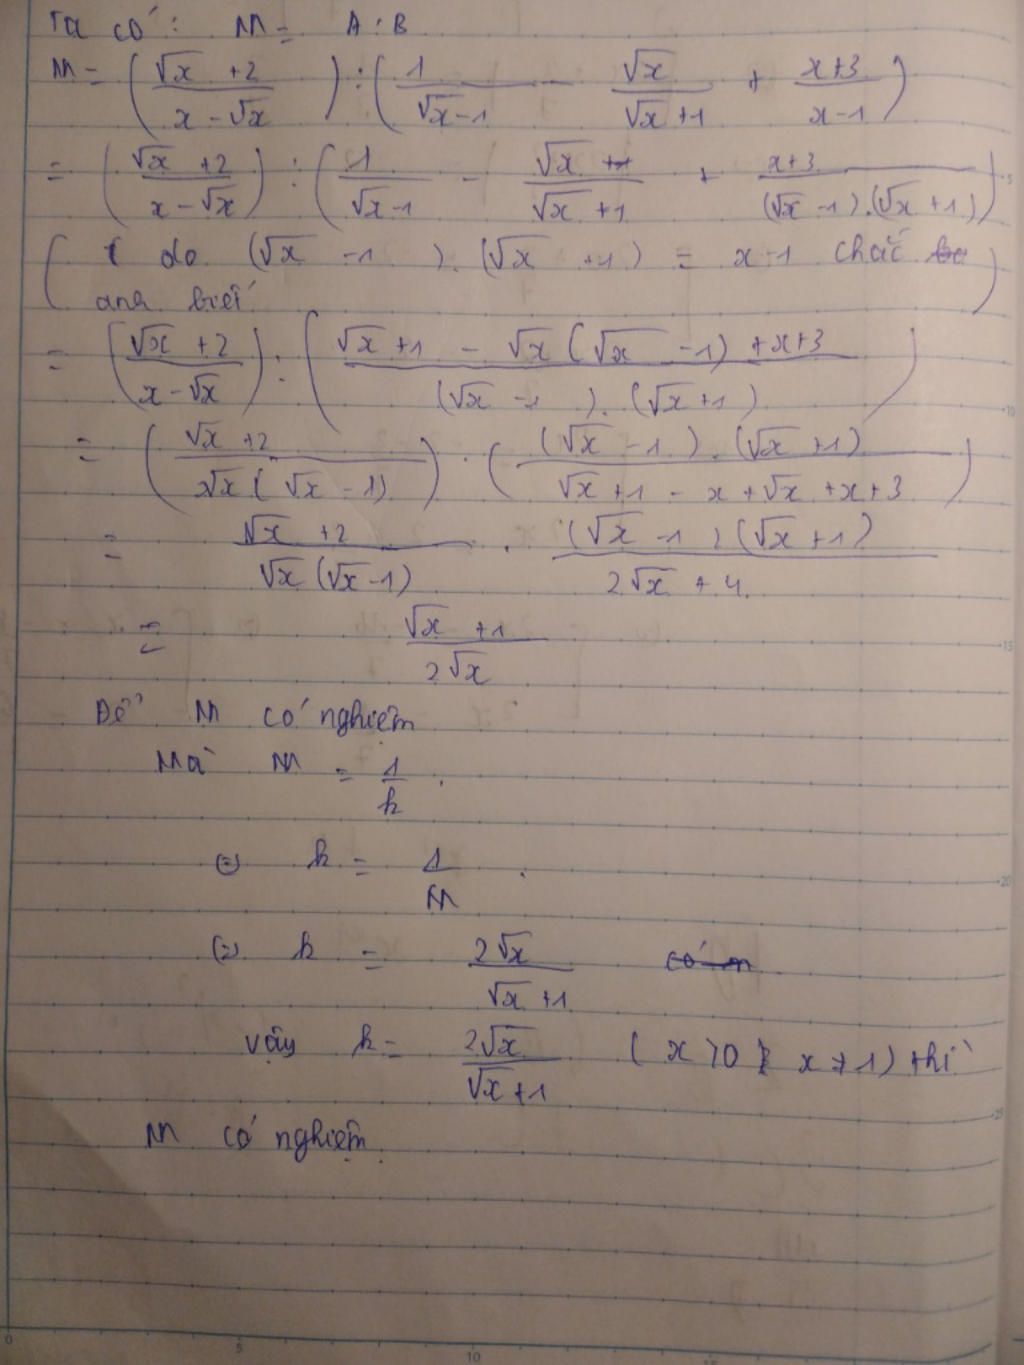 Ta có: M = A : B
M = ( (√x + 2)/(x - √x) ) : ( 1/(√x - 1) - √x/(√x + 1) + (x + 3)/(x - 1) )
= ( (√x + 2)/(x - √x) ) : ( 1/(√x - 1) - √x/(√x + 1) + (x + 3)/((√x - 1).(√x + 1)) )
( do (√x - 1).(√x + 1) = x - 1 chắc
anh biết )
= ( (√x + 2)/(x - √x) ) : ( (√x + 1 - √x(√x - 1) + x + 3)/((√x - 1).(√x + 1)) )
= ( (√x + 2)/(√x(√x - 1)) ) . ( ((√x - 1).(√x + 1))/(√x + 1 - x + √x + x + 3) )
= (√x + 2)/(√x(√x - 1)) . ((√x - 1)(√x + 1))/(2√x + 4)
= (√x + 1)/(2√x)
Để M có nghiệm
Mà M = 1/k.
(=) k = 1/M.
(=) k = 2√x/(√x + 1)
Vậy k = 2√x/(√x + 1) (x > 0 ; x ≠ 1) thì
M có nghiệm.
5
10
15
20
25
0
5
10